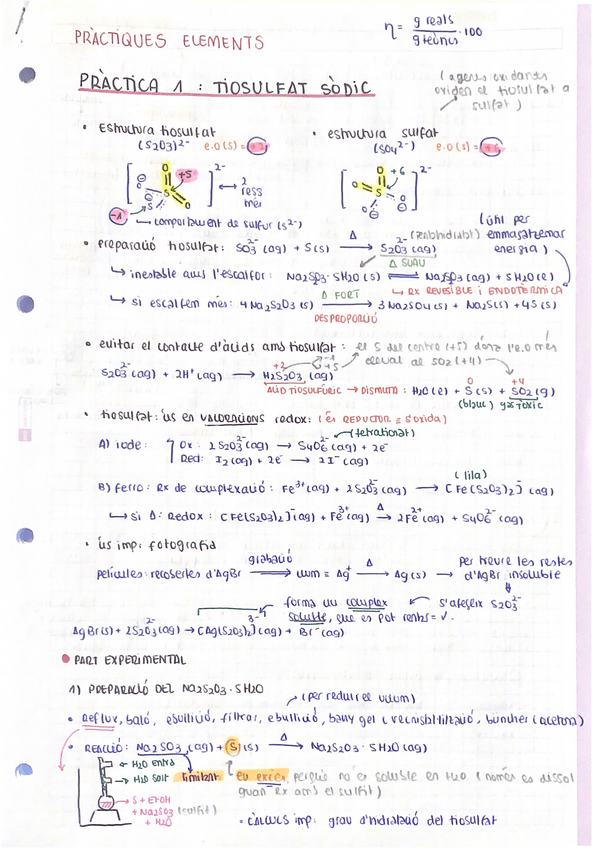 PRÀCTIQUES ELEMENTS
η = g reals / g teòrics · 100
PRÀCTICA 1 : TIOSULFAT SÒDIC
(agents oxidants oxiden el tiosulfat a sulfat)
• Estructura tiosulfat
(S2O3)²⁻ e.o(s) = +2
• estructura sulfat
(SO4²⁻) e.o(s) = +6
O +5 2-
O S O
S
2 ress més
-1 ↳ comportament de sulfur (s²⁻)
O +6 2-
O S
O O
• preparació tiosulfat: SO3²⁻ (aq) + S(s) →Δ S2O3²⁻ (aq)
(útil per emmagatzemar energia)
Δ SUAU
↳ inestable amb l'escalfor: Na2S2O3·5H2O (s) ⇌ Na2S2O3 (aq) + 5H2O (l)
↳ RX REVESIBLE i ENDOTÈRMICA
↳ si escalfem més: 4Na2S2O3 (s) →Δ FORT 3Na2SO4 (s) + Na2S(s) + 4S (s)
DESPROPORCIÓ
• evitar el contacte d'àcids amb tiosulfat: el S del centre (+5) dóna l'e.o més elevat al SO2 (+4)
S2O3²⁻ (aq) + 2H⁺ (aq) → H2S2O3 (aq) +2 -1 +5
ÀCID TIOSULFÚRIC → DISMUTA: H2O (l) + S (s) + SO2 (g)
0 +4
(blanc) gas tòxic
• tiosulfat: ús en VALORACIONS redox: (és REDUCTOR = s'oxida)
A) iode: Ox: 2S2O3²⁻ (aq) → S4O6²⁻ (aq) + 2e⁻
(tetrationat)
Red: I2 (aq) + 2e⁻ → 2I⁻ (aq)
B) ferro: RX de complexació: Fe³⁺ (aq) + 2S2O3²⁻ (aq) → [Fe(S2O3)2]⁻ (aq)
(lila)
↳ si Δ: Redox: [Fe(S2O3)2]⁻ (aq) + Fe³⁺ (aq) →Δ 2Fe²⁺ (aq) + S4O6²⁻ (aq)
• ús imp: fotografia
pel·lícules: recobertes d'AgBr ⟹ gravació llum = Ag⁺ →Δ Ag (s) → per treure les restes d'AgBr insoluble
forma un complex soluble, que es pot rentar = ✓. ← s'afegeix S2O3²⁻
AgBr(s) + 2S2O3²⁻ (aq) → [Ag(S2O3)2]³⁻ (aq) + Br⁻ (aq)
• PART EXPERIMENTAL
1) PREPARACIÓ DEL Na2S2O3 · 5H2O
(per reduir el volum)
• Reflux, baló, ebullició, filtrar, ebullició, bany gel (recristal·lització, büchner (acetona)
• REACCIÓ: Na2SO3 (aq) + S (s) →Δ Na2S2O3 · 5H2O (aq)
← H2O entra
→ H2O surt
limitant
en excés, perquè no és soluble en H2O (només es dissol quan RX amb el sulfit)
→ S + EtOH
+ Na2SO3 (sulfit)
+ H2O
• CÀLCULS imp: grau d'hidratació del tiosulfat